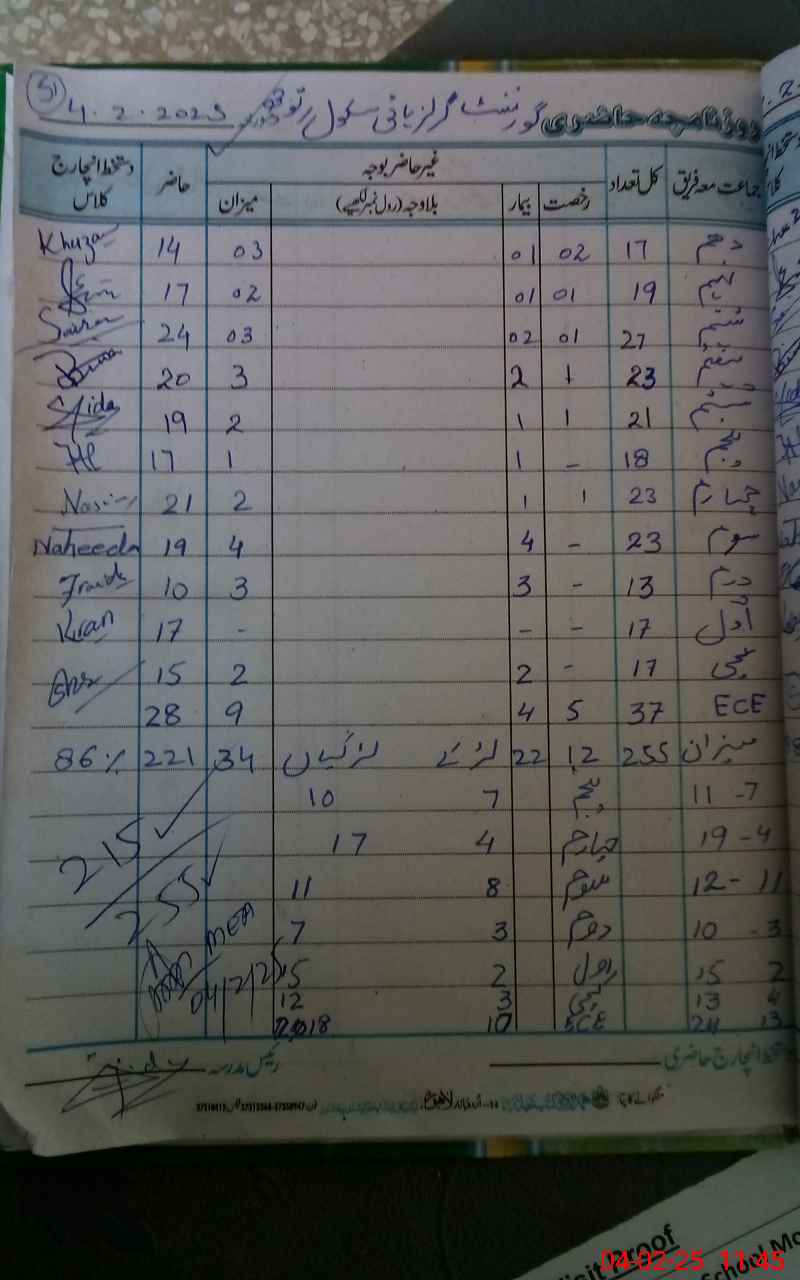 51
4.2.2025 گورنمنٹ گرلز ہائی سکول روزنامچہ حاضری
جماعت معہ فریق کل تعداد غیر حاضر بوجہ حاضر دستخط انچارج کلاس
رخصت بیمار بلاوجہ (رول نمبر لکھیے) میزان
دہم 17 02 01 03 14
نہم 19 01 01 02 17
ہشتم 27 01 02 03 24
ہفتم 23 1 2 3 20
ششم 21 1 1 2 19
پنجم 18 - 1 1 17
چہارم 23 1 1 2 21
سوم 23 - 4 4 19 Naheeda
دوم 13 - 3 3 10
اول 17 - - - 17 Kiran
کچی 17 - 2 2 15
ECE 37 5 4 9 28
میزان 255 12 22 لڑکے لڑکیاں 34 221 86%
11-7 پنجم 7 10
19-4 چہارم 4 17
12-11 سوم 8 11 215
10-3 دوم 3 7 255
15 2 اول 2 15 MEA
13 4 کچی 3 12 04/2/25
24 13 ECE 10 18
دستخط انچارج حاضری رئیس مدرسہ
04-02-25 11:45